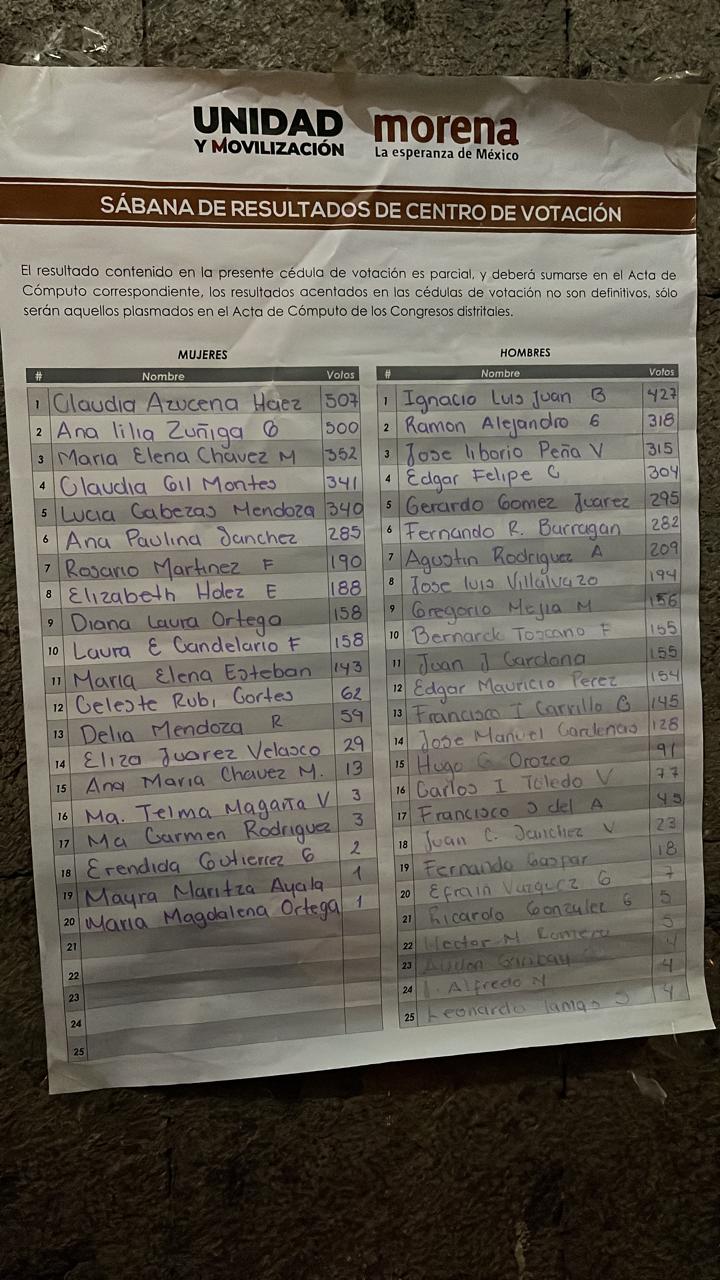 UNIDAD
Y MOVILIZACIÓN
morena
La esperanza de México
SÁBANA DE RESULTADOS DE CENTRO DE VOTACIÓN
El resultado contenido en la presente cédula de votación es parcial, y deberá sumarse en el Acta de
Cómputo correspondiente, los resultados acentados en las cédulas de votación no son definitivos, sólo
serán aquellos plasmados en el Acta de Cómputo de los Congresos distritales.
MUJERES
# Nombre Votos
1 Claudia Azucena Hdez 507
2 Ana lilia Zuñiga B 500
3 Maria Elena Chavez M 352
4 Claudia Gil Montes 341
5 Lucia Cabezas Mendoza 340
6 Ana Paulina Sanchez 285
7 Rosario Martinez F 190
8 Elizabeth Hdez E 188
9 Diana Laura Ortega 158
10 Laura E Candelario F 158
11 Maria Elena Esteban 143
12 Celeste Rubi Cortes 62
13 Delia Mendoza R 59
14 Eliza Juarez Velasco 29
15 Ana Maria Chavez M. 13
16 Ma. Telma Magaña V 3
17 Ma Carmen Rodriguez 3
18 Erendida Gutierrez G 2
19 Mayra Maritza Ayala 1
20 Maria Magdalena Ortega 1
21
22
23
24
25
HOMBRES
# Nombre Votos
1 Ignacio Luis Juan B 427
2 Ramon Alejandro G 318
3 Jose liborio Peña V 315
4 Edgar Felipe C 304
5 Gerardo Gomez Juarez 295
6 Fernando R. Barragan 282
7 Agustin Rodriguez A 209
8 Jose luis Villalvazo 194
9 Gregorio Mejia M 156
10 Bernardo Toscano F 155
11 Juan J Cardona 155
12 Edgar Mauricio Perez 154
13 Francisco I Carrillo B 145
14 Jose Manuel Cardenas 128
15 Hugo G Orozco 91
16 Carlos I Toledo V 77
17 Francisco J del A 45
18 Juan C. Sanchez V 23
19 Fernando Gaspar 18
20 Efrain Vazquez G 7
21 Ricardo Gonzalez G 5
22 Hector M Romero 5
23 Garibay 4
24 Alfredo N 4
25 Leonardo 4